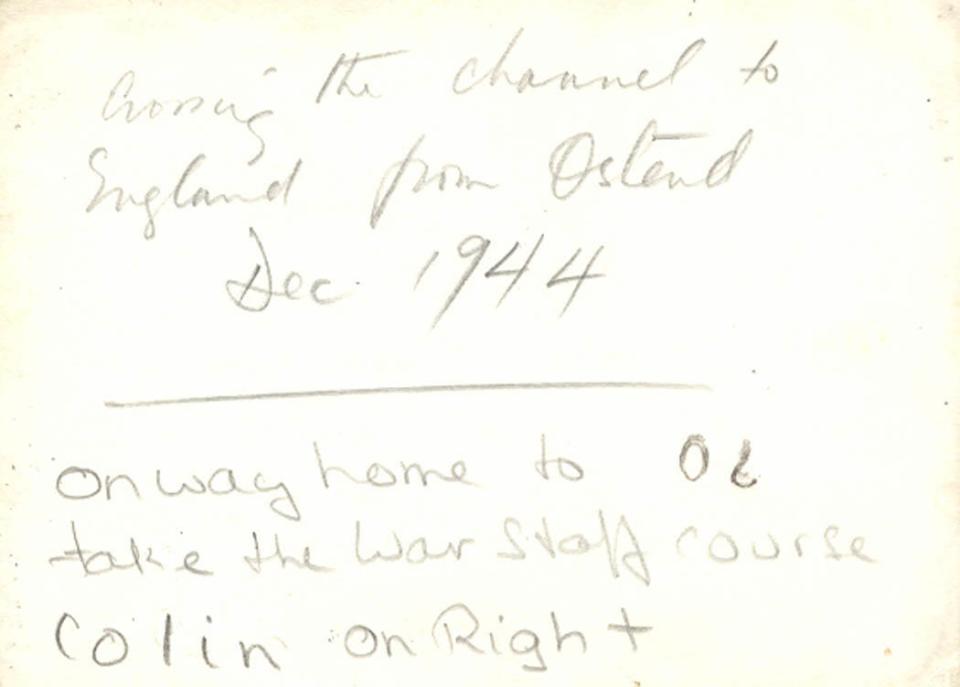 Crossing the channel to
England from Ostend
Dec 1944
On way home to
take the War Staff course
Colin on Right